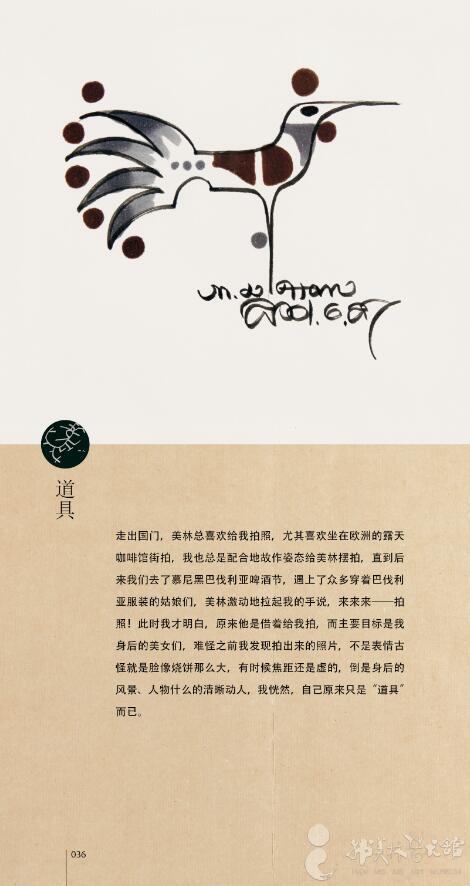 2001.6.
道具
走出国门，美林总喜欢给我拍照，尤其喜欢坐在欧洲的露天
咖啡馆街拍，我也总是配合地故作姿态给美林摆拍，直到后
来我们去了慕尼黑巴伐利亚啤酒节，遇上了众多穿着巴伐利
亚服装的姑娘们，美林激动地拉起我的手说，来来来——拍
照！此时我才明白，原来他是借着给我拍，而主要目标是我
身后的美女们，难怪之前我发现拍出来的照片，不是表情古
怪就是脸像烧饼那么大，有时候焦距还是虚的，倒是身后的
风景、人物什么的清晰动人，我恍然，自己原来只是“道具”
而已。
036
韩美林艺术馆
HAN MEI LIN ART MUSEUM